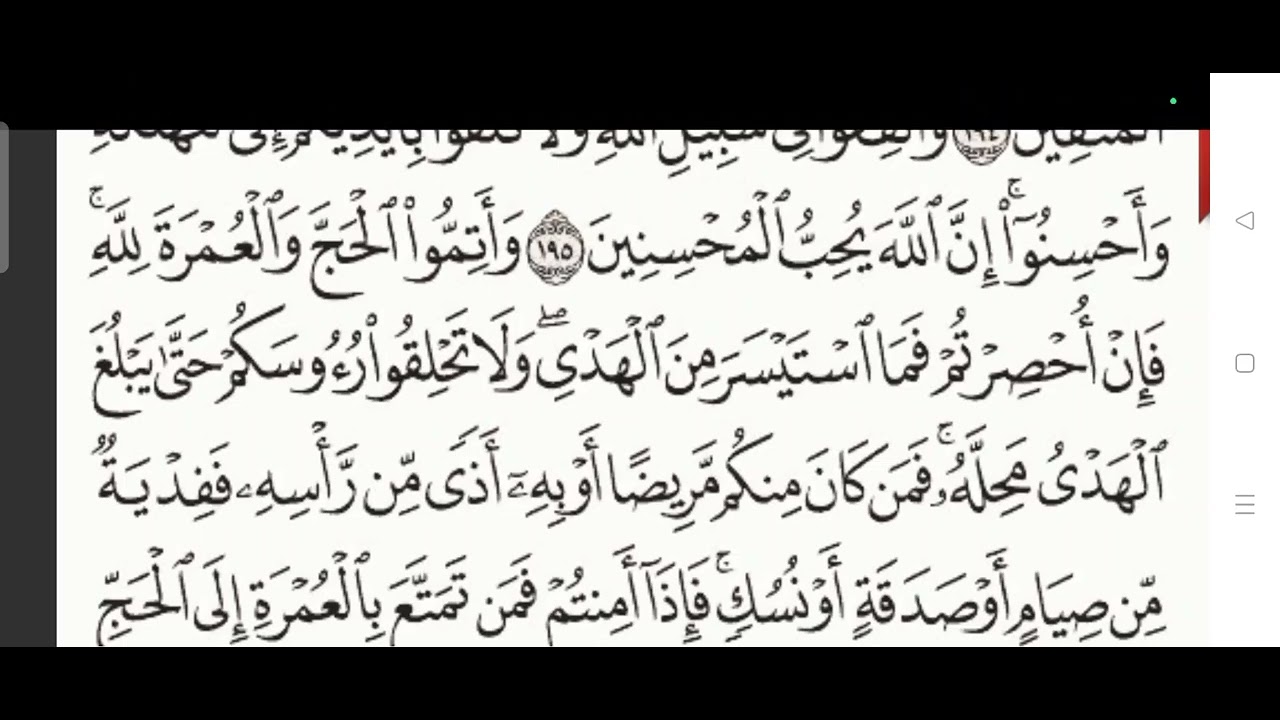 ٱلْمُتَّقِينَ ١٩٤ وَأَنفِقُوا۟ فِى سَبِيلِ ٱللَّهِ وَلَا تُلْقُوا۟ بِأَيْدِيكُمْ إِلَى ٱلتَّهْلُكَةِ
وَأَحْسِنُوٓا۟ۚ إِنَّ ٱللَّهَ يُحِبُّ ٱلْمُحْسِنِينَ ١٩٥ وَأَتِمُّوا۟ ٱلْحَجَّ وَٱلْعُمْرَةَ لِلَّهِۚ
فَإِنْ أُحْصِرْتُمْ فَمَا ٱسْتَيْسَرَ مِنَ ٱلْهَدْىِۖ وَلَا تَحْلِقُوا۟ رُءُوسَكُمْ حَتَّىٰ يَبْلُغَ
ٱلْهَدْىُ مَحِلَّهُۥۚ فَمَن كَانَ مِنكُم مَّرِيضًا أَوْ بِهِۦٓ أَذًى مِّن رَّأْسِهِۦ فَفِدْيَةٌ
مِّن صِيَامٍ أَوْ صَدَقَةٍ أَوْ نُسُكٍۚ فَإِذَآ أَمِنتُمْ فَمَن تَمَتَّعَ بِٱلْعُمْرَةِ إِلَى ٱلْحَجِّ